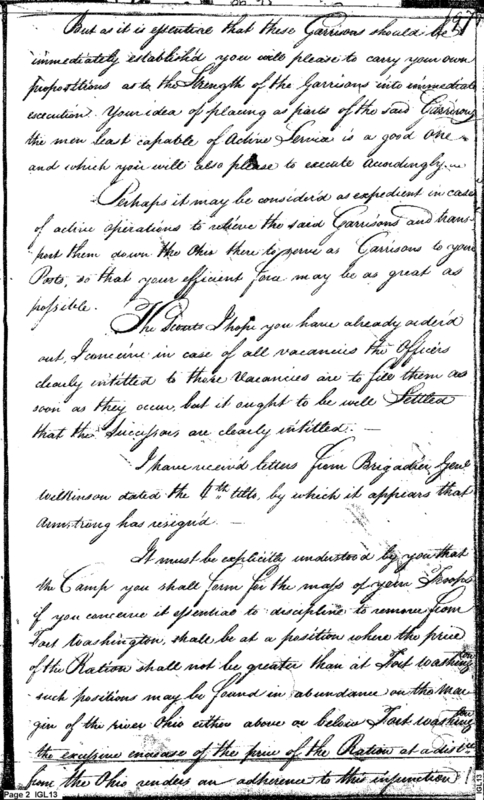 197
But as it is essential that these Garrisons should be
immediately establish'd you will please to carry your own
propositions as to the Strength of the Garrisons into immediate
execution. Your idea of placing as parts of the said Garrisons
the men least capable of Active Service is a good one
and which you will also please to execute accordingly
Perhaps it may be consider'd as expedient in case
of active operations to relieve the said Garrisons and trans-
port them down the Ohio there to serve as Garrisons to your
Posts, so that your efficient force may be as great as
possible.
The Scouts I hope you have already order'd
out, I conceive in case of all vacancies the Officers
clearly intitled to those Vacancies are to fill them as
soon as they occur, but it ought to be well Settled
that the Successors are clearly intitled.—
I have receiv'd letters from Brigadier Genl
Wilkinson dated the 4th Ulto, by which it appears that
Armstrong has resign'd —
It must be explicitly understood by you that
the Camp you shall form for the mass of your Troops
if you conceive it essential to discipline to remove from
Fort Washington, shall be at a position where the price
of the Ration shall not be greater than at Fort Washington
such positions may be found in abundance on the mar
gin of the river Ohio either above or below Fort Washington
the excessive encrease of the price of the Ration at a distce
from the Ohio renders an adherence to this injunction
Page 2 IGL13
IGL13